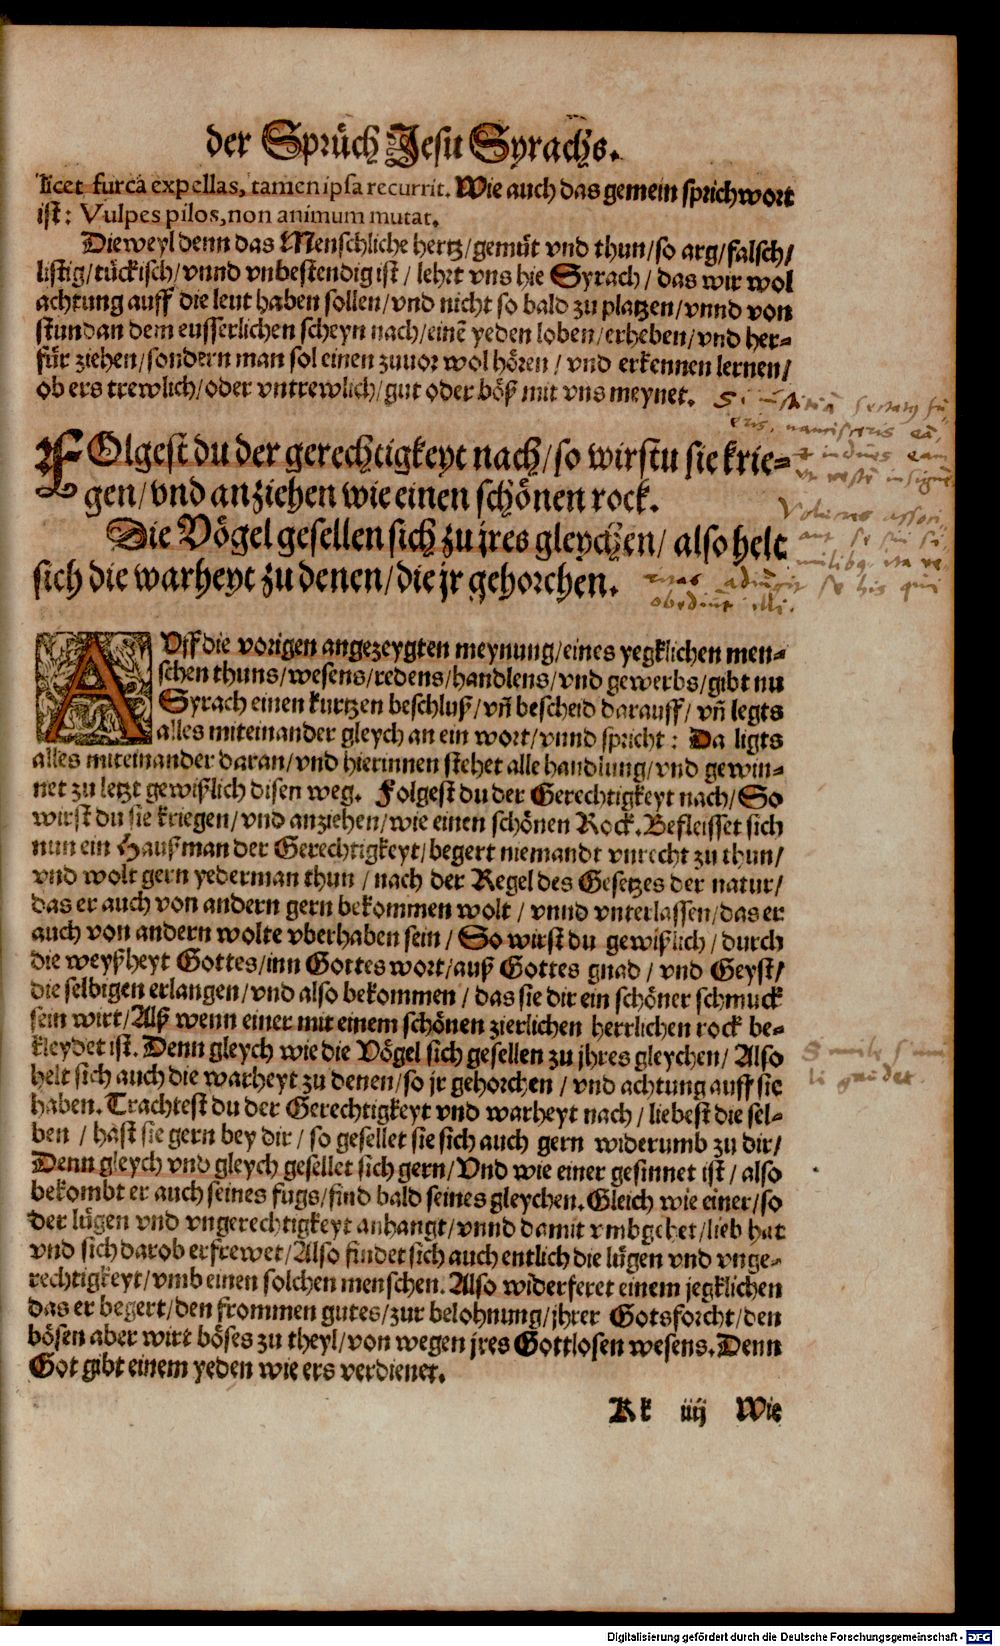 der Sprüch Jesu Syrachs.
licet furcâ expellas, tamen ipsa recurrit. Wie auch das gemein sprichwort
ist: Vulpes pilos, non animum mutat.
Dieweyl denn das Menschliche hertz/gemüt vnd thun/so arg/falsch/
listig/tückisch/vnnd vnbestendig ist/ lehrt vns hie Syrach/ das wir wol
achtung auff die leut haben sollen/vnd nicht so bald zu platzen/vnnd von
stundan dem eusserlichen scheyn nach/einē yeden loben/erheben/vnd her=
für ziehen/sondern man sol einen zuuor wol hören/ vnd erkennen lernen/
ob ers trewlich/oder vntrewlich/gut oder böß mit vns meynet.
FOlgest du der gerechtigkeyt nach/so wirstu sie krie=
gen/vnd anziehen wie einen schönen rock.
Die Vögel gesellen sich zu jres gleychen/ also helt
sich die warheyt zu denen/die jr gehorchen.
Si iustitiā sectatus fu
eris, nancisceris eā,
et indues eam
ut vestē insignē
Volucres associ-
ant se sui si-
milibq. ita ve-
ritas adiūgit se his qui
obediūt illi.
AVff die vorigen angezeygten meynung/eines yegklichen men=
schen thuns/wesens/redens/handlens/vnd gewerbs/gibt nu
Syrach einen kurtzen beschluß/vñ bescheid darauff/ vñ legts
alles miteinander gleych an ein wort/vnnd spricht: Da ligts
alles miteinander daran/vnd hierinnen stehet alle handlung/vnd gewin=
net zu letzt gewißlich disen weg. Folgest du der Gerechtigkeyt nach/So
wirst du sie kriegen/vnd anziehen/wie einen schönen Rock. Befleisset sich
nun ein Haußman der Gerechtigkeyt/begert niemandt vnrecht zu thun/
vnd wolt gern yederman thun/ nach der Regel des Gesetzes der natur/
das er auch von andern gern bekommen wolt/ vnnd vnterlassen/das er
auch von andern wolte vberhaben sein/ So wirst du gewißlich/ durch
die weyßheyt Gottes/inn Gottes wort/auß Gottes gnad/ vnd Geyst/
die selbigen erlangen/vnd also bekommen/ das sie dir ein schöner schmuck
sein wirt/Alß wenn einer mit einem schönen zierlichen herrlichen rock be=
kleydet ist. Denn gleych wie die Vögel sich gesellen zu jhres gleychen/ Also
helt sich auch die warheyt zu denen/so jr gehorchen/ vnd achtung auff sie
haben. Trachtest du der Gerechtigkeyt vnd warheyt nach/ liebest die sel=
ben/ hast sie gern bey dir/ so gesellet sie sich auch gern widerumb zu dir/
Denn gleych vnd gleych gesellet sich gern/ Vnd wie einer gesinnet ist/ also
bekombt er auch seines fugs/find bald seines gleychen. Gleich wie einer/so
der lügen vnd vngerechtigkeyt anhangt/vnnd damit vmbgehet/lieb hat
vnd sich darob erfrewet/Also findet sich auch entlich die lügen vnd vnge=
rechtigkeyt/vmb einen solchen menschen. Also widerferet einem jegklichen
das er begert/den frommen gutes/zur belohnung/jhrer Gotsforcht/den
bösen aber wirt böses zu theyl/von wegen jres Gottlosen wesens. Denn
Got gibt einem yeden wie ers verdienet.
Simile simi
li gaudet.
Kk iiij Wie
Digitalisierung gefördert durch die Deutsche Forschungsgemeinschaft - DFG